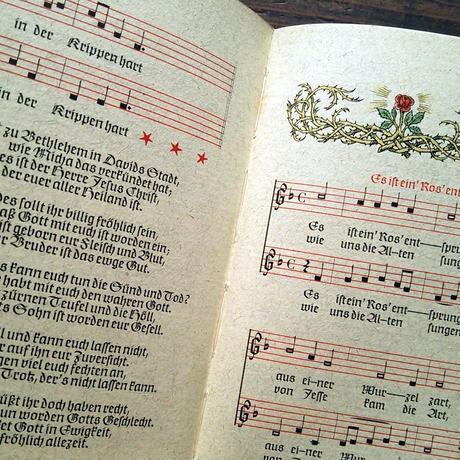 in der Krippen hart
in der Krippen hart
zu Bethlehem in Davids Stadt,
wie Micha das verkündet hat;
es ist der Herre Jesus Christ,
der euer aller Heiland ist.
des sollt ihr billig fröhlich sein,
daß Gott mit euch ist worden ein;
ist geborn eur Fleisch und Blut,
Bruder ist das ewge Gut.
kann euch tun die Sünd und Tod?
habt mit euch den wahren Gott.
zürnen Teufel und die Höll,
Sohn ist worden eur Gesell.
und kann euch lassen nicht,
auf ihn eur Zuversicht.
gen viel euch fechten an,
Trotz, der's nicht lassen kann.
ihr doch haben recht,
nun worden Gotts Geschlecht.
Gott in Ewigkeit,
fröhlich allezeit.
Es ist ein' Ros' ent
Es ist ein' Ros' ent—sprung
wie uns die Al—ten sung
Es ist ein' Ros' ent—sprung
wie uns die Al—ten sungen
aus ei—ner Wur—zel zart,
von Jesse kam die Art,
aus ei—ner Wur—zel
von Jesse kam die